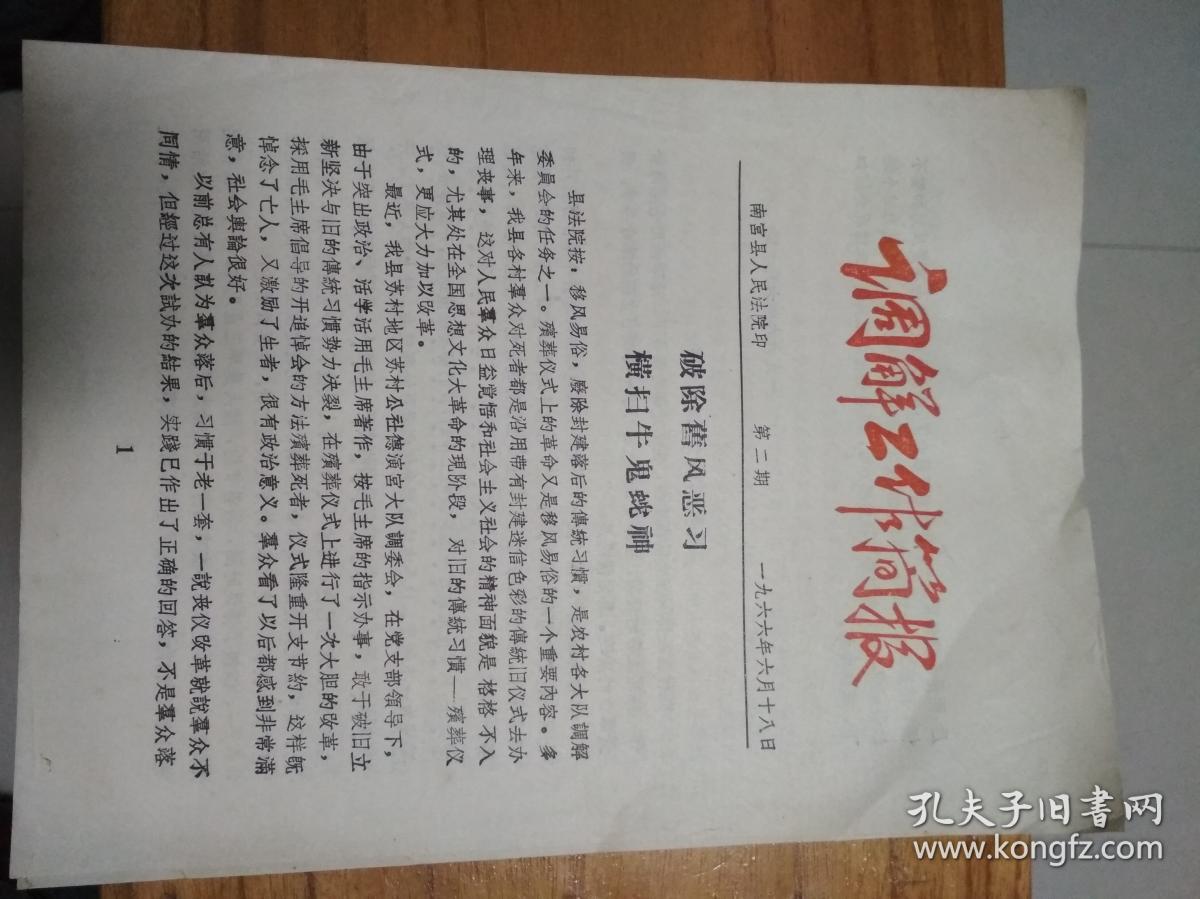 调解工作简报
南宫县人民法院印 第二期 一九六六年六月十八日
破除舊风恶习
横扫牛鬼蛇神
县法院按：移风易俗，廢除封建落后的傳統习慣，是农村各大队調解
委員会的任务之一。殯葬仪式上的革命又是移风易俗的一个重要內容。多
年来，我县各村羣众对死者都是沿用带有封建迷信色彩的傳統旧仪式去办
理丧事，这对人民羣众日益觉悟和社会主义社会的精神面貌是格格不入
的，尤其处在全国思想文化大革命的現阶段，对旧的傳統习慣——殯葬仪
式，更应大力加以改革。
最近，我县苏村地区苏村公社德演宫大队調委会，在党支部領导下，
由于突出政治、活学活用毛主席著作，按毛主席的指示办事，敢于破旧立
新坚决与旧的傳統习慣势力决裂，在殯葬仪式上进行了一次大胆的改革，
採用毛主席倡导的开追悼会的方法殯葬死者，仪式隆重开支节約，这样旣
悼念了亡人，又激励了生者，很有政治意义。羣众看了以后都感到非常滿
意，社会輿論很好。
以前总有人訧为羣众落后，习慣于老一套，一說丧仪改革就說羣众不
同情，但經过这次試办的結果，实踐已作出了正确的回答，不是羣众落
1
孔夫子旧书网
www.kongfz.com